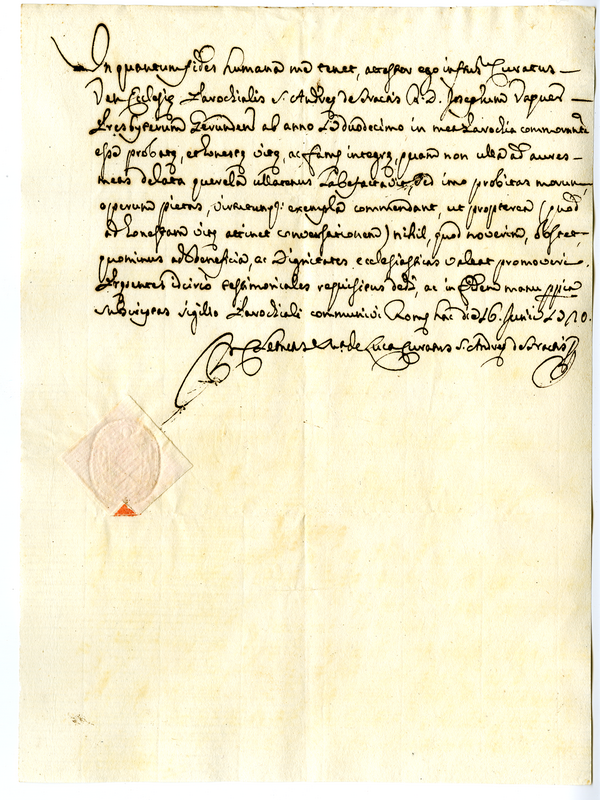 In quantum fides humana me tenet, attestor ego infrus Curatus
Ven Ecclesię Parochialis S. Andreę de Fractis R. D. Josephum
Presbyterum Gerunden ab anno in mea Parochia commorante
esse probatę, et honestę vitę, ac famę integrę, quam non ulla ad aures
meas delata querela ullatenus labefactavit, sed imo probitas morum,
operum pietas, virtutumq; exempla commendant, ut propterea (quod
ad honestam vitę attinet conversationem) nihil, quod noverim, obstet,
quominus ad Beneficia, ac Dignitates ecclesiasticas valeat promoveri.
has idcirco testimoniales requisitus dedi, ac in fidem manu ppria
subscriptas sigillo Parochiali communivi. Romę hac die 16. Junii
de Luca Curatus S. Andreę de Fractis